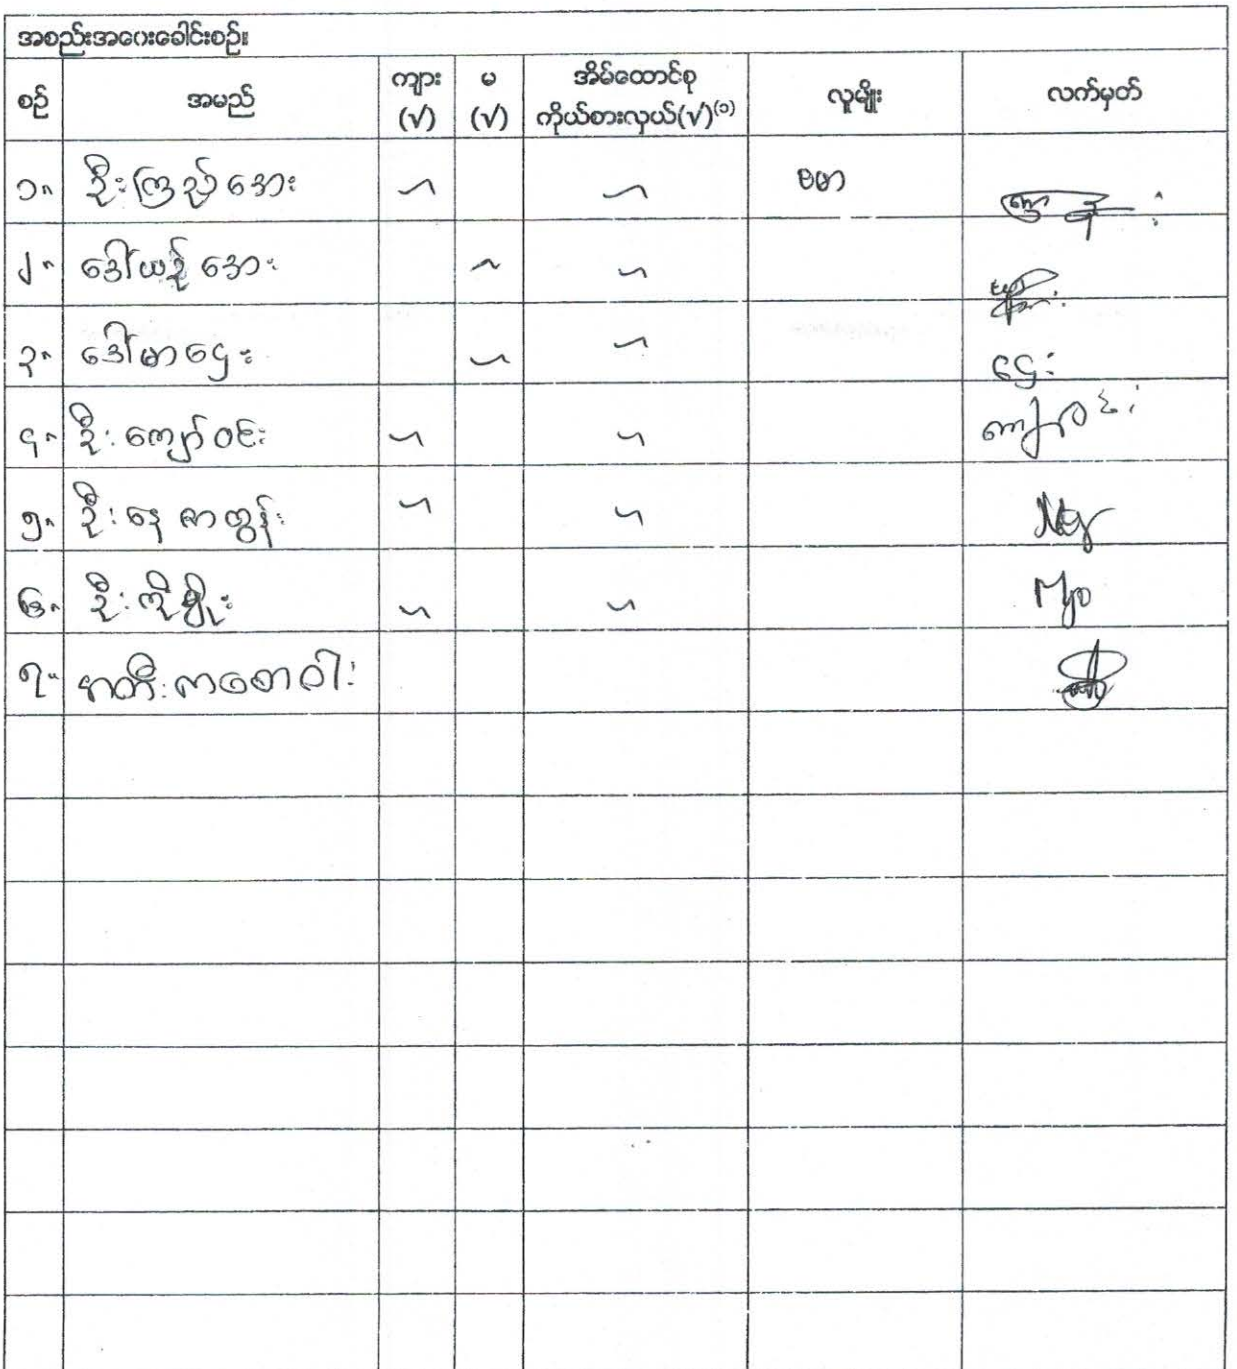 အစည်းအဝေးခေါင်းစဉ်း
စဉ် အမည် ကျား (√) မ (√) အိမ်ထောင်စု ကိုယ်စားလှယ်(√)⁽¹⁾ လူမျိုး လက်မှတ်
၁။ ဦးကြည်အေး ဗမာ
၂။ ဒေါ်ယဉ်အေး
၃။ ဒေါ်မာဌေး ဌေး
၄။ ဦးကျော်ဝင်း ကျော်ဝင်း
၅။ ဦးနေဇာထွန်း
၆။ ဦးကိုမျိုး Myo
၇။